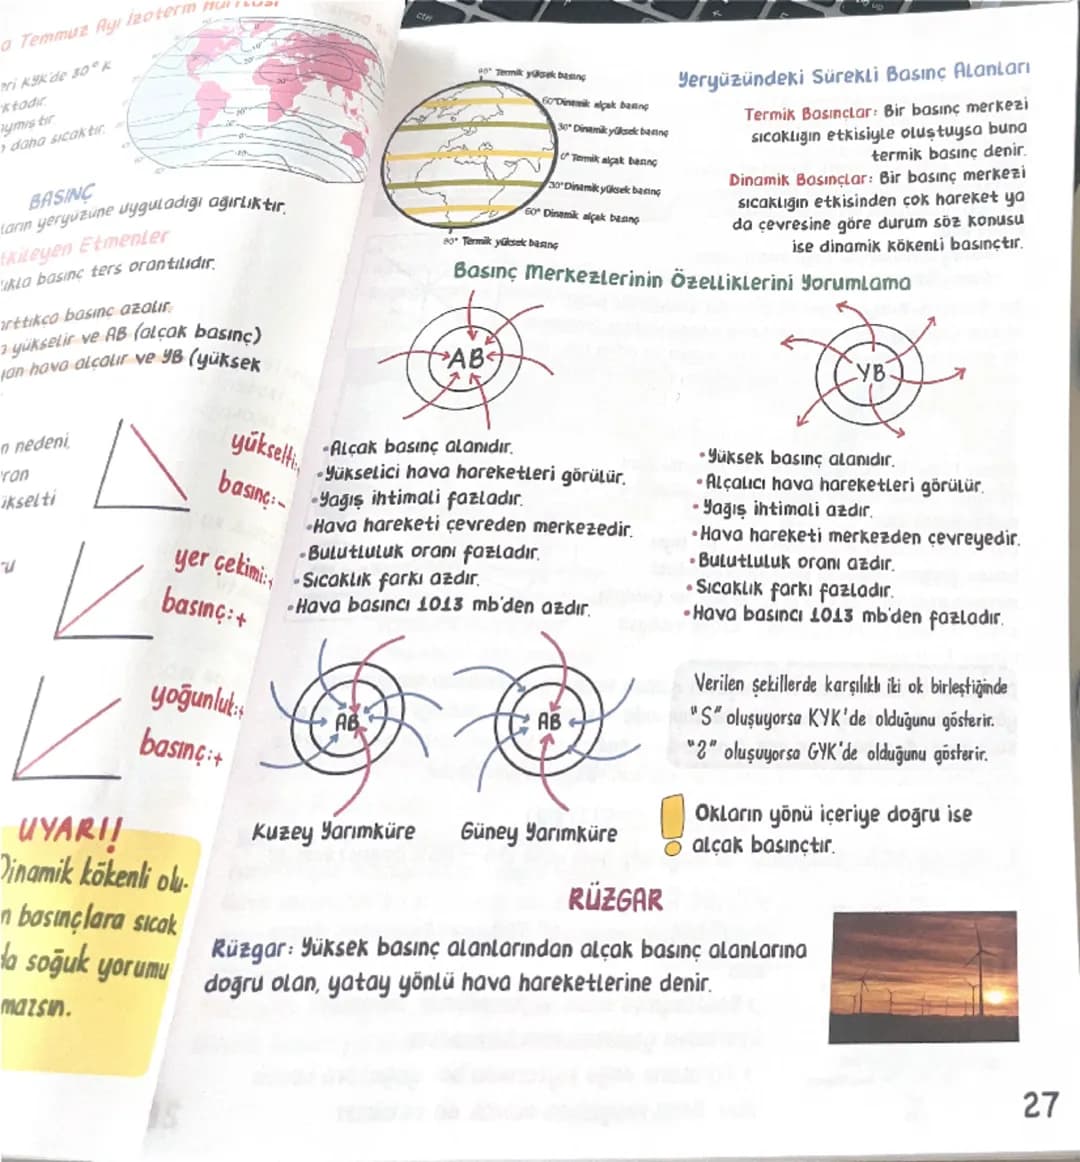 a Temmuz Ayı İzoterm
eri KYK'de 30° K
ktadır.
aymıştır
daha sıcaktır.
BASINÇ
ların yeryüzüne uyguladığı ağırlıktır.
tkileyen Etmenler
ıkla basınç ters orantılıdır.
arttıkça basınç azalır.
yükselir ve AB (alçak basınç)
yan hava alçalır ve YB (yüksek
n nedeni,
ran
ükselti
yükselti:
basınç:-
yer çekimi:
basınç:+
yoğunluk:+
basınç:+
UYARI!
Dinamik kökenli olu-
n basınçlara sıcak
da soğuk yorumu
mazsın.
90° Termik yüksek basınç
60° Dinamik alçak basınç
30° Dinamik yüksek basınç
0° Termik alçak basınç
30° Dinamik yüksek basınç
60° Dinamik alçak basınç
90° Termik yüksek basınç
Yeryüzündeki Sürekli Basınç Alanları
Termik Basınçlar: Bir basınç merkezi
sıcaklığın etkisiyle oluştuysa buna
termik basınç denir.
Dinamik Basınçlar: Bir basınç merkezi
sıcaklığın etkisinden çok hareket ya
da çevresine göre durum söz konusu
ise dinamik kökenli basınçtır.
Basınç Merkezlerinin Özelliklerini Yorumlama
AB
YB
•Alçak basınç alanıdır.
•Yükselici hava hareketleri görülür.
•Yağış ihtimali fazladır.
•Hava hareketi çevreden merkezedir.
•Bulutluluk oranı fazladır.
•Sıcaklık farkı azdır.
•Hava basıncı 1013 mb'den azdır.
•Yüksek basınç alanıdır.
•Alçalıcı hava hareketleri görülür.
•Yağış ihtimali azdır.
•Hava hareketi merkezden çevreyedir.
•Bulutluluk oranı azdır.
•Sıcaklık farkı fazladır.
•Hava basıncı 1013 mb'den fazladır.
AB
AB
Kuzey Yarımküre
Güney Yarımküre
Verilen şekillerde karşılıklı iki ok birleştiğinde
"S" oluşuyorsa KYK'de olduğunu gösterir.
"2" oluşuyorsa GYK'de olduğunu gösterir.
Okların yönü içeriye doğru ise
alçak basınçtır.
RÜZGAR
Rüzgar: Yüksek basınç alanlarından alçak basınç alanlarına
doğru olan, yatay yönlü hava hareketlerine denir.
27